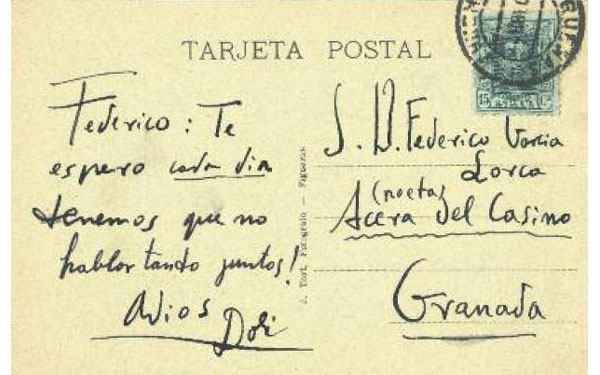 TARJETA POSTAL
15 ESPAÑA
Federico: Te
espero cada dia
tenemos que no
hablar tando juntos!
Adios Dali
J. Tort, Fotógrafo — Figueras
S. D. Federico Garcia
Lorca
(poeta)
Acera del Casino
Granada